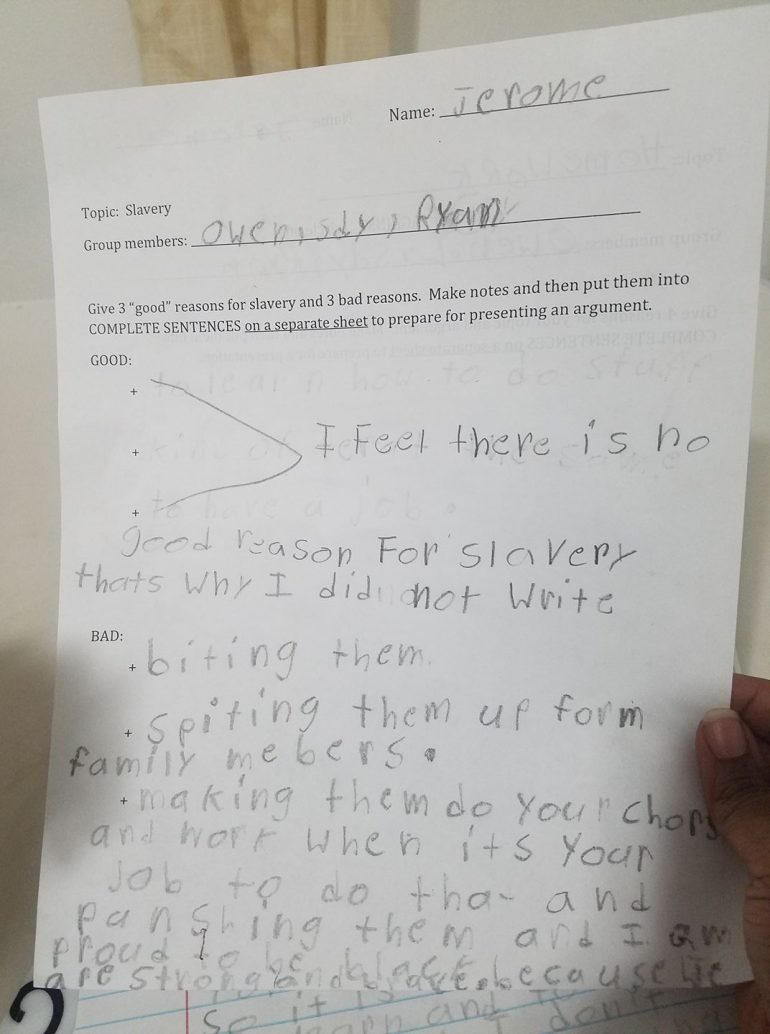 Name: Jerome
Topic: Slavery
Group members: Owen, sdy, Ryan
Give 3 "good" reasons for slavery and 3 bad reasons. Make notes and then put them into
COMPLETE SENTENCES on a separate sheet to prepare for presenting an argument.
GOOD:
to learn how to do stuff
+
+ I Feel there is no
to have a job.
+
good reason For slavery
thats why I did not write
BAD:
+ biting them.
+ spiting them up form
family mebers.
+ making them do your chors
and work when its your
job to do tha and
panshing them and I am
proud to be black because we
are strong and brave.
so it is
learn and I don't